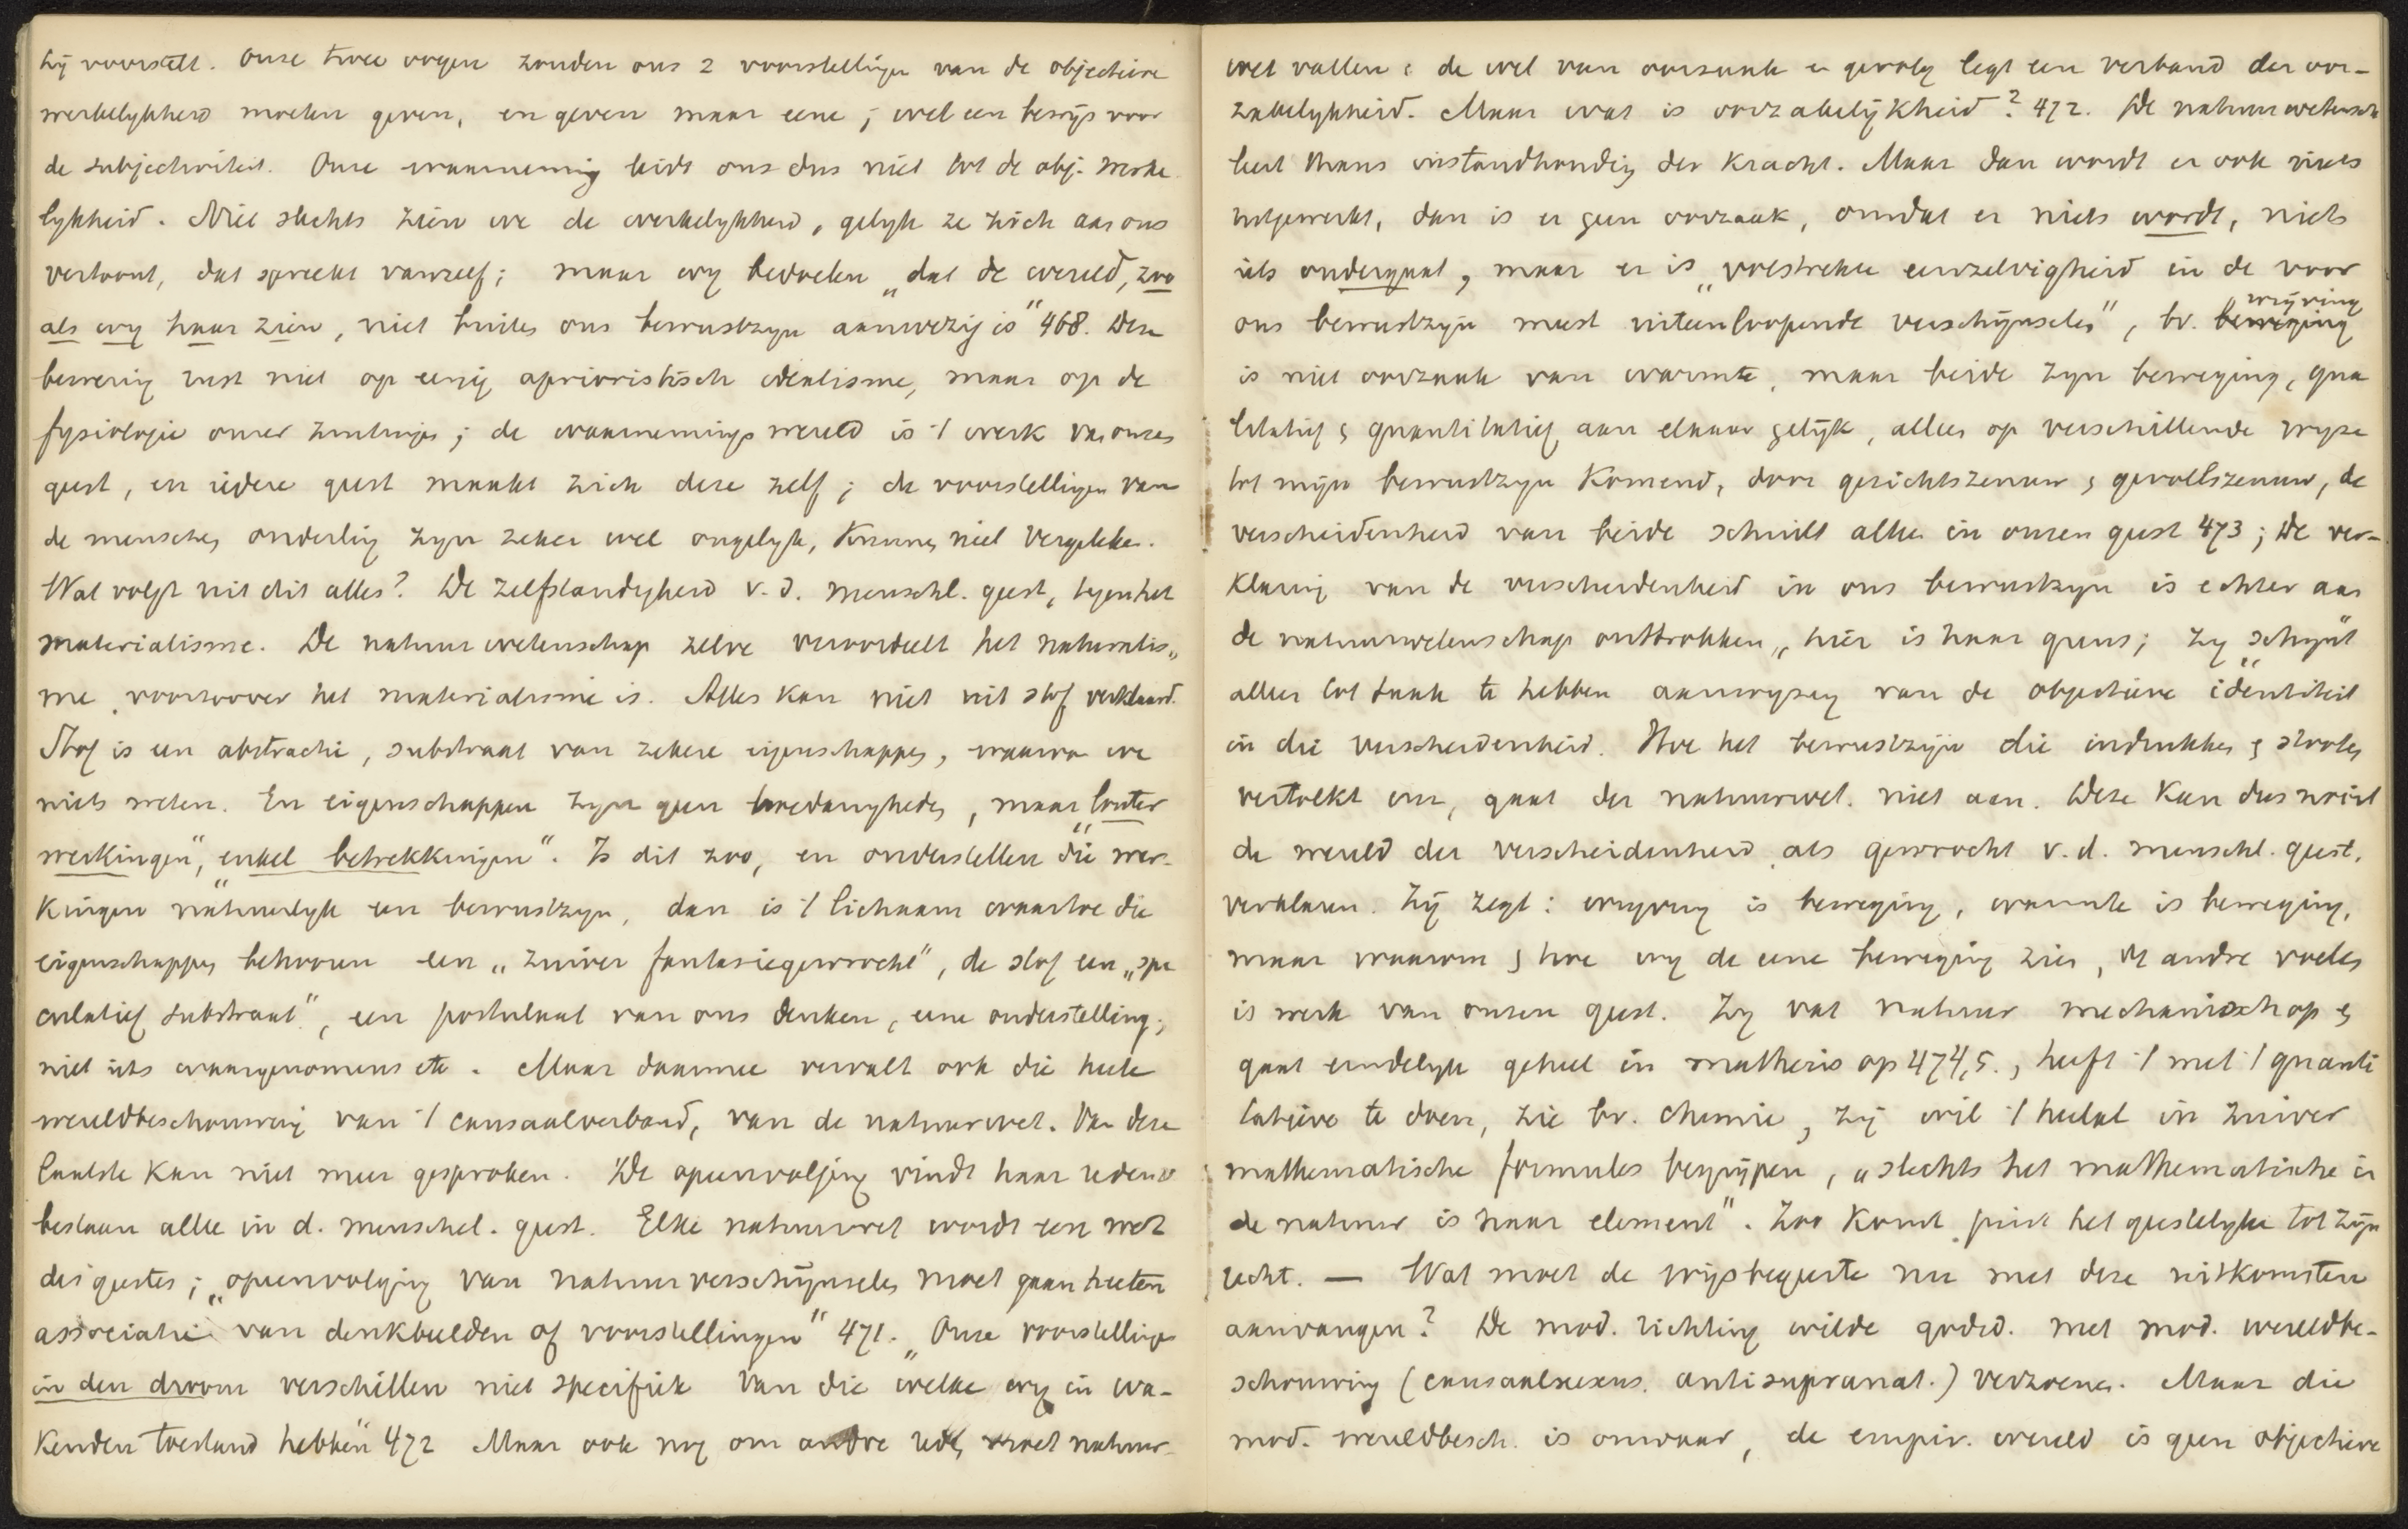 hij voorstelt. Onze twee oogen zouden ons 2 voorstellingen van de objectieve
werkelykheid moeten geven, en geven maar eene; wel een bewijs voor
de subjectiviteit. Onze waarneming leidt ons dus niet tot de obj. werke
lykheid. Niet slechts zien we de werkelykheid, gelyk ze zich aan ons
vertoont, dat spreekt vanzelf; maar wy bedoelen „dat de wereld, zoo
als wy haar zien, niet buiten ons bewustzyn aanwezig is" 468. Deze
bewering rust niet op eenig aprioristisch idealisme, maar op de
fysiologie onzer zintuigen; de waarnemings wereld is 't werk van onzen
geest, en iedere geest maakt zich deze zelf; de voorstellingen van
de menschen onderling zyn zeker wel ongelyk, kunnen niet vergeleken.
Wat volgt uit dit alles? De zelfstandigheid v. d. menschl. geest, tegen het
materialisme. De natuurwetenschap zelve veroordeelt het naturalis„
me, voorzoover het materialisme is. Alles kan niet uit stof verklaard.
Stof is een abstractie, substraat van zekere eigenschappen, waarvan we
niets weten. En eigenschappen zyn geen hoedanigheden, maar „louter
werkingen", „enkel betrekkingen". Is dit zoo, en onderstellen die wer-
kingen natuurlyk een bewustzyn, dan is 't lichaam waartoe die
eigenschappen behooren een „zuiver fantasiegewrocht", de stof een „spe
culatief substraat", een postulaat van ons denken, eene onderstelling;
niet iets waargenomens etc. Maar daarmee vervalt ook die heele
wereldbeschouwing van 't causaalverband, van de natuurwet. Van deze
laatste kan niet meer gesproken. De opeenvolging vindt haar reden v
bestaan alleen in d. menschel. geest. Elke natuurwet wordt een wet
des geestes; „opeenvolging van natuurverschijnselen moet gaan heeten
associatie van denkbeelden of voorstellingen" 471. „Onze voorstellingen
in den droom verschillen niet specifiek van die welke wy in wa-
kenden toestand hebben" 472 Maar ook nog om andre reden moet natuur-
wet vallen: de wet van oorzaak en gevolg legt een verband der oor-
zakelykheid. Maar wat is oorzakelijkheid? 472. De natuurwetensch
leert thans instandhouding der kracht. Maar dan wordt er ook niets
uitgewerkt, dan is er geen oorzaak, omdat er niets wordt, niets
iets ondergaat, maar er is „volstrekte eenzelvigheid in de voor
ons bewustzijn meest uiteenloopende verschijnselen", bv. wrijving
is niet oorzaak van warmte, maar beide zyn beweging, qua
litatief & quantitatief aan elkaar gelijk, alleen op verschillende wyze
tot mijn bewustzyn komend, door gezichtszenuw & gevoelszenuw, de
verscheidenheid van beide schuilt alleen in onzen geest 473; De ver-
klaring van de verscheidenheid in ons bewustzyn is echter aan
de natuurwetenschap onttrokken „hier is haar grens; zy schijnt
alleen tot taak te hebben aanwyzing van de objectieve identiteit"
in die verscheidenheid. Hoe het bewustzijn die indrukken & stooten
vertolkt enz, gaat der natuurwet. niet aan. Deze kan dus nooit
de wereld der verscheidenheid, als gewrocht v. d. menschl. geest,
verklaren. Zij zegt: wryving is beweging, warmte is beweging,
maar waarom & hoe wy de eene beweging zien, de andre voelen
is werk van onzen geest. Zy vat natuur mechanisch op &
gaat eindelyk geheel in mathesis op 474,5., heeft 't met 't quanti
tatieve te doen, zie bv. chemie, zij wil 't heelal in zuiver
mathematische formules begrijpen, „slechts het mathematische in
de natuur is haar element". Zoo komt juist het geestelyke tot zijn
recht. — Wat moet de wijsbegeerte nu met deze uitkomsten
aanvangen? De mod. richting wilde godsd. met mod. wereldbe-
schouwing (causaalnexus. antisupranat.) verzoenen. Maar die
mod. wereldbesch. is onwaar, de empir. wereld is geen objectieve